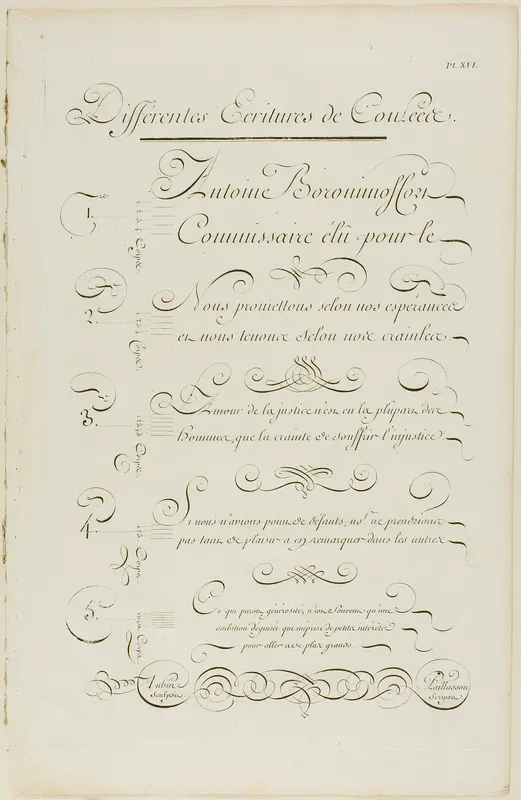 Pl. XVI.
Différentes Ecritures de Coulées.
1.re
Antoine
Commissaire élû pour le
2.
Nous promettons selon nos espérances
et nous tenons selon nos craintes.
3.
Amour de la justice n'est en la plûpart des
hommes, que la crainte de souffrir l'injustice.
4.
Si nous n'avions point de défauts, no.s ne prendrions
pas tant de plaisir a en remarquer dans les autres
5.
Ce qui paroit générosité, n'est souvent qu'une
ambition déguisée qui méprise de petits intérêts
pour aller a de plus grands.
Aubin
Sculpsit.
Paillasson
Scripsit.